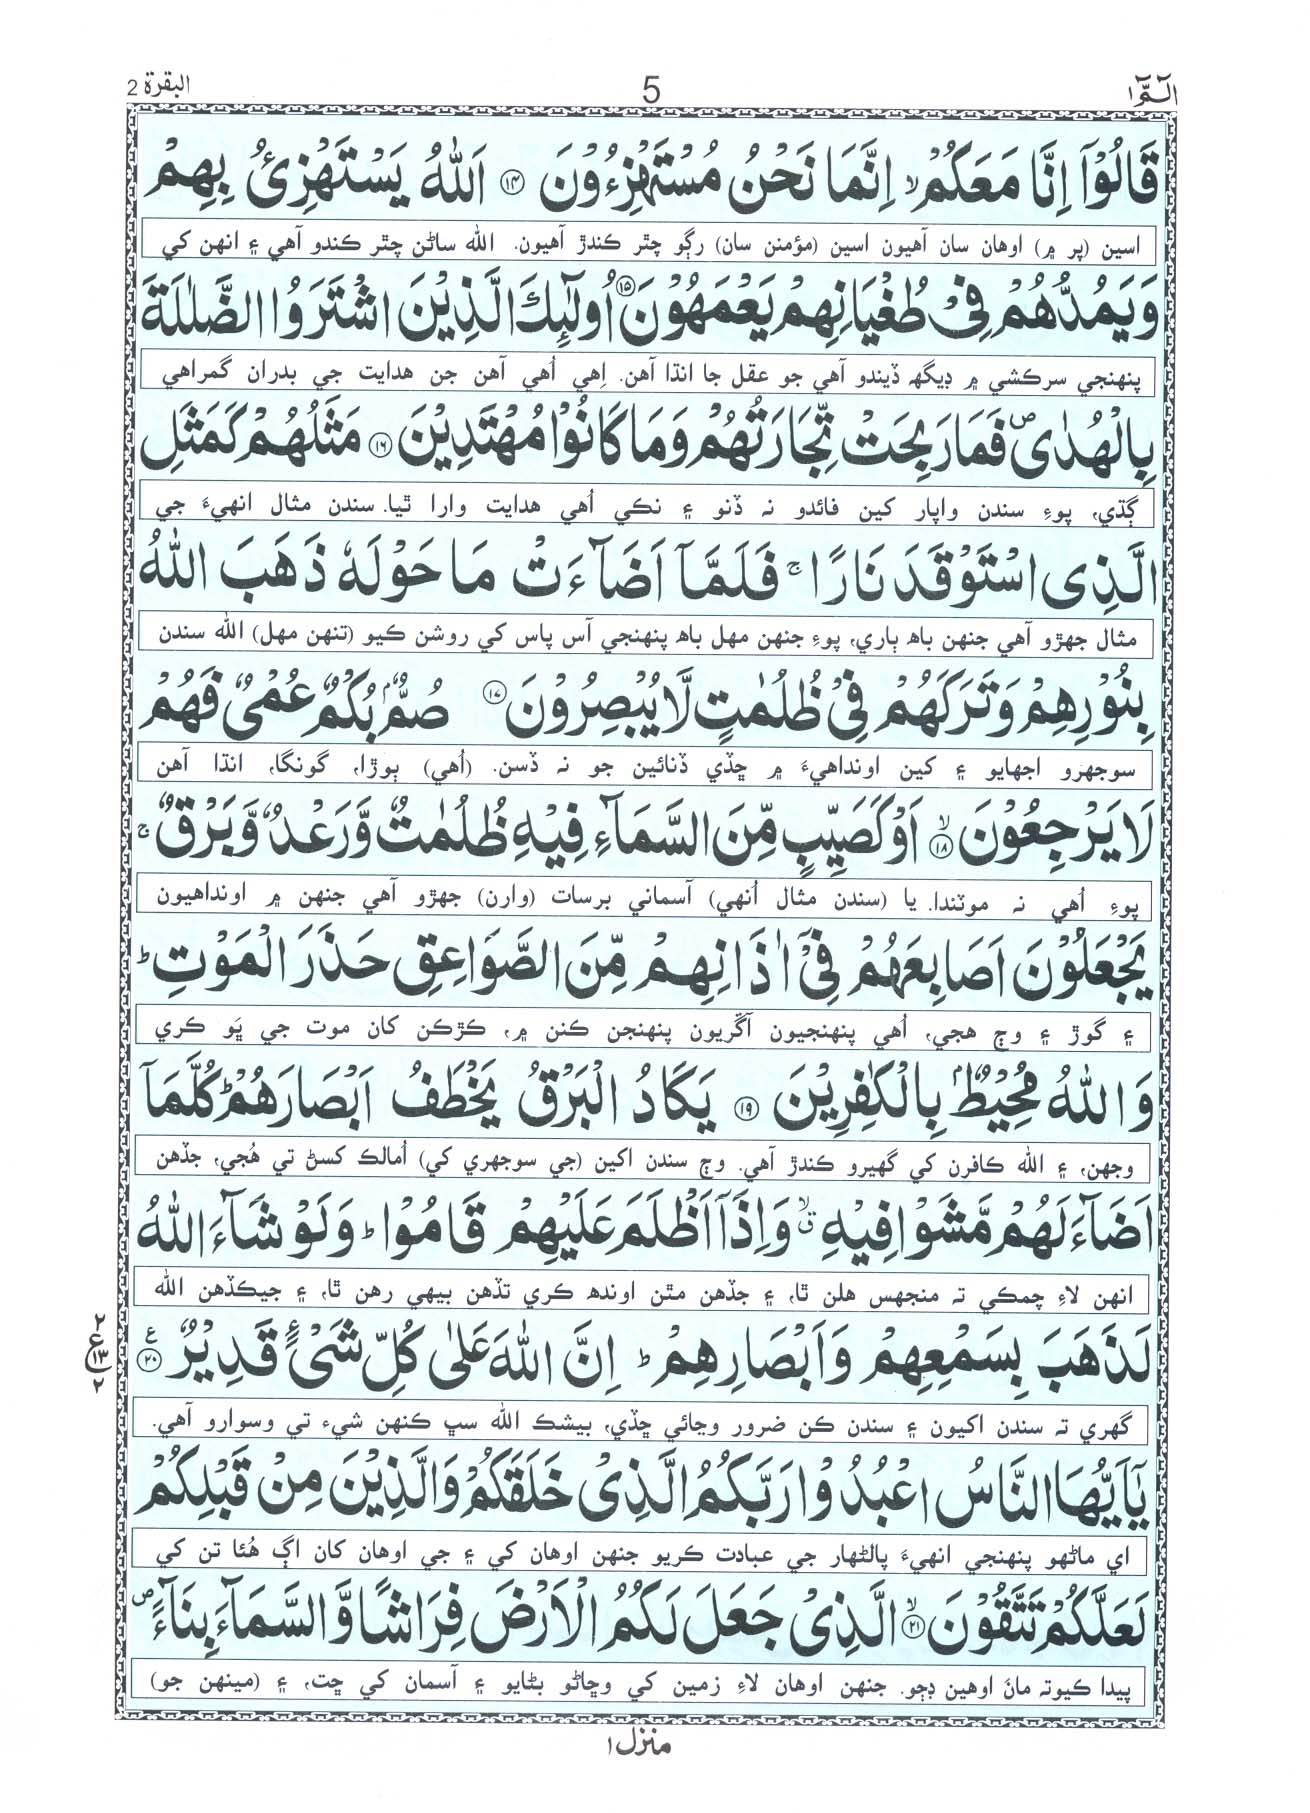 الٓمّٓ ١ 5 البقرة 2
قَالُوْٓا اِنَّا مَعَكُمْ ۙ اِنَّمَا نَحْنُ مُسْتَهْزِءُوْنَ ﴿١٤﴾ اَللّٰهُ يَسْتَهْزِئُ بِهِمْ
اسين (پر ۾) اوهان سان آهيون اسين (مؤمنن سان) رڳو چٿر ڪندڙ آهيون. الله ساڻن چٿر ڪندو آهي ۽ انهن کي
وَيَمُدُّهُمْ فِيْ طُغْيَانِهِمْ يَعْمَهُوْنَ ﴿١٥﴾ اُولٰٓئِكَ الَّذِيْنَ اشْتَرَوُا الضَّلٰلَةَ
پنهنجي سرڪشي ۾ ڍيگهہ ڏيندو آهي جو عقل جا انڌا آهن. اِهي اُهي آهن جن هدايت جي بدران گمراهي
بِالْهُدٰى ۪ فَمَا رَبِحَتْ تِّجَارَتُهُمْ وَمَا كَانُوْا مُهْتَدِيْنَ ﴿١٦﴾ مَثَلُهُمْ كَمَثَلِ
ڳڌي، پوءِ سندن واپار کين فائدو نہ ڏنو ۽ نڪي اُهي هدايت وارا ٿيا. سندن مثال انهيءَ جي
الَّذِى اسْتَوْقَدَ نَارًا ۚ فَلَمَّآ اَضَآءَتْ مَا حَوْلَهٗ ذَهَبَ اللّٰهُ
مثال جهڙو آهي جنهن باھ ٻاري، پوءِ جنهن مهل باھ پنهنجي آس پاس کي روشن ڪيو (تنهن مهل) الله سندن
بِنُوْرِهِمْ وَتَرَكَهُمْ فِيْ ظُلُمٰتٍ لَّا يُبْصِرُوْنَ ﴿١٧﴾ صُمٌّۢ بُكْمٌ عُمْىٌ فَهُمْ
سوجهرو اجهايو ۽ کين اونداهيءَ ۾ ڇڏي ڏنائين جو نہ ڏسن. (اُهي) ٻوڙا، گونگا، انڌا آهن
لَا يَرْجِعُوْنَ ۙ﴿١٨﴾ اَوْ كَصَيِّبٍ مِّنَ السَّمَآءِ فِيْهِ ظُلُمٰتٌ وَّرَعْدٌ وَّبَرْقٌ ۚ
پوءِ اُهي نہ موٽندا. يا (سندن مثال اُنهي) آسماني برسات (وارن) جهڙو آهي جنهن ۾ اونداهيون
يَجْعَلُوْنَ اَصَابِعَهُمْ فِيْٓ اٰذَانِهِمْ مِّنَ الصَّوَاعِقِ حَذَرَ الْمَوْتِ ؕ
۽ گوڙ ۽ وڄ هجي، اُهي پنهنجيون آڱريون پنهنجن ڪنن ۾، ڪڙڪن کان موت جي ڀَو کري
وَاللّٰهُ مُحِيْطٌۢ بِالْكٰفِرِيْنَ ﴿١٩﴾ يَكَادُ الْبَرْقُ يَخْطَفُ اَبْصَارَهُمْ ؕ كُلَّمَآ
وجهن، ۽ الله ڪافرن کي گهيرو ڪندڙ آهي. وڄ سندن اکين (جي سوجهري کي) اُمالڪ کسڻ تي هُجي، جڏهن
اَضَآءَ لَهُمْ مَّشَوْا فِيْهِ ۙۗ وَاِذَآ اَظْلَمَ عَلَيْهِمْ قَامُوْا ؕ وَلَوْ شَآءَ اللّٰهُ
انهن لاءِ چمڪي تہ منجهس هلن ٿا، ۽ جڏهن مٿن اوندھ ڪري تڏهن بيهي رهن ٿا، ۽ جيڪڏهن الله
لَذَهَبَ بِسَمْعِهِمْ وَاَبْصَارِهِمْ ؕ اِنَّ اللّٰهَ عَلٰى كُلِّ شَيْءٍ قَدِيْرٌ ﴿٢٠﴾ ع
٢ ع ١٣ ٢
گهري تہ سندن اکيون ۽ سندن ڪن ضرور وڃائي ڇڏي، بيشڪ الله سڀ ڪنهن شيء تي وسوارو آهي.
يٰٓاَيُّهَا النَّاسُ اعْبُدُوْا رَبَّكُمُ الَّذِيْ خَلَقَكُمْ وَالَّذِيْنَ مِنْ قَبْلِكُمْ
اي ماڻهو پنهنجي انهيءَ پالڻهار جي عبادت ڪريو جنهن اوهان کي ۽ جي اوهان کان اڳ هُئا تن کي
لَعَلَّكُمْ تَتَّقُوْنَ ۙ﴿٢١﴾ الَّذِيْ جَعَلَ لَكُمُ الْاَرْضَ فِرَاشًا وَّالسَّمَآءَ بِنَآءً ۪
پيدا ڪيوتہ مانَ اوهين ڊڄو. جنهن اوهان لاءِ زمين کي وڇاڻو بڻايو ۽ آسمان کي ڇت، ۽ (مينهن جو)
منزل ١